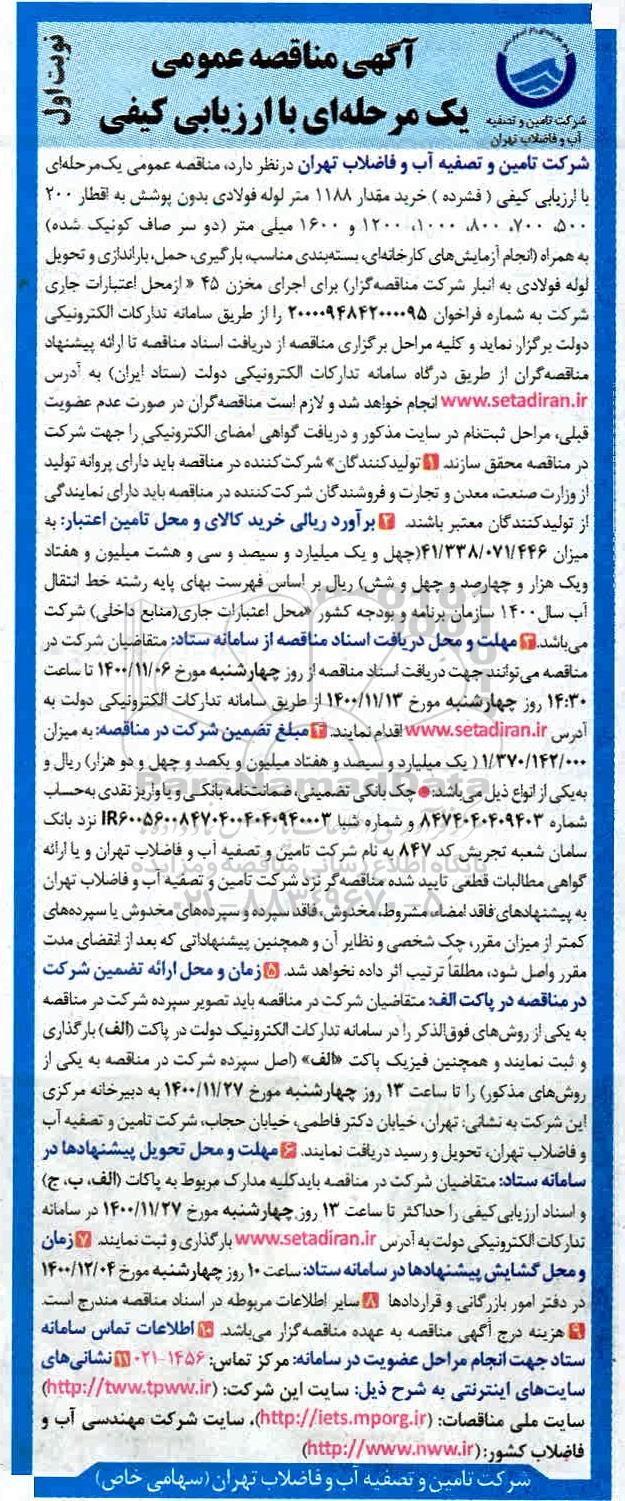 نوبت اول
آگهی مناقصه عمومی
یک مرحله‌ای با ارزیابی کیفی
شرکت تامین و تصفیه
آب و فاضلاب تهران
شرکت تامین و تصفیه آب و فاضلاب تهران درنظر دارد، مناقصه عمومی یک‌مرحله‌ای
با ارزیابی کیفی ( فشرده ) خرید مقدار ۱۱۸۸ متر لوله فولادی بدون پوشش به اقطار ۲۰۰
،۵۰۰، ۷۰۰، ۸۰۰، ۱۰۰۰، ۱۲۰۰ و ۱۶۰۰ میلی متر (دو سر صاف کونیک شده)
به همراه (انجام آزمایش‌های کارخانه‌ای، بسته‌بندی مناسب، بارگیری، حمل، باراندازی و تحویل
لوله فولادی به انبار شرکت مناقصه‌گزار) برای اجرای مخزن ۴۵ « ازمحل اعتبارات جاری
شرکت به شماره فراخوان ۲۰۰۰۰۹۴۸۴۲۰۰۰۰۹۵ را از طریق سامانه تدارکات الکترونیکی
دولت برگزار نماید و کلیه مراحل برگزاری مناقصه از دریافت اسناد مناقصه تا ارائه پیشنهاد
مناقصه‌گران از طریق درگاه سامانه تدارکات الکترونیکی دولت (ستاد ایران) به آدرس
www.setadiran.ir انجام خواهد شد و لازم است مناقصه‌گران در صورت عدم عضویت
قبلی، مراحل ثبت‌نام در سایت مذکور و دریافت گواهی امضای الکترونیکی را جهت شرکت
در مناقصه محقق سازند. ۱ تولیدکنندگان» شرکت‌کننده در مناقصه باید دارای پروانه تولید
از وزارت صنعت، معدن و تجارت و فروشندگان شرکت‌کننده در مناقصه باید دارای نمایندگی
از تولیدکنندگان معتبر باشند. ۲ برآورد ریالی خرید کالای و محل تامین اعتبار: به
میزان ۴۱/۳۳۸/۰۷۱/۴۴۶(چهل و یک میلیارد و سیصد و سی و هشت میلیون و هفتاد
ویک هزار و چهارصد و چهل و شش) ریال بر اساس فهرست بهای پایه رشته خط انتقال
آب سال ۱۴۰۰ سازمان برنامه و بودجه کشور «محل اعتبارات جاری(منابع داخلی) شرکت
می‌باشد. ۳ مهلت و محل دریافت اسناد مناقصه از سامانه ستاد: متقاضیان شرکت در
مناقصه می‌توانند جهت دریافت اسناد مناقصه از روز چهارشنبه مورخ ۱۴۰۰/۱۱/۰۶ تا ساعت
۱۴:۳۰ روز چهارشنبه مورخ ۱۴۰۰/۱۱/۱۳ از طریق سامانه تدارکات الکترونیکی دولت به
آدرس www.setadiran.ir اقدام نمایند. ۴ مبلغ تضمین شرکت در مناقصه: به میزان
۱/۳۷۰/۱۴۲/۰۰۰ ( یک میلیارد و سیصد و هفتاد میلیون و یکصد و چهل و دو هزار) ریال و
به‌یکی از انواع ذیل می‌باشد: چک بانکی تضمینی، ضمانت‌نامه بانکی و یا واریز نقدی به‌حساب
شماره ۸۴۷۴۰۴۰۴۰۹۴۰۳ و شماره شبا IR۶۰۰۵۶۰۰۸۴۷۰۴۰۰۴۰۴۰۹۴۰۰۳ نزد بانک
سامان شعبه تجریش کد ۸۴۷ به نام شرکت تامین و تصفیه آب و فاضلاب تهران و یا ارائه
گواهی مطالبات قطعی تایید شده مناقصه‌گر نزد شرکت تامین و تصفیه آب و فاضلاب تهران
به پیشنهادهای فاقد امضاء، مشروط، مخدوش، فاقد سپرده و سپرده‌های مخدوش یا سپرده‌های
کمتر از میزان مقرر، چک شخصی و نظایر آن و همچنین پیشنهاداتی که بعد از انقضای مدت
مقرر واصل شود، مطلقاً ترتیب اثر داده نخواهد شد. ۵ زمان و محل ارائه تضمین شرکت
در مناقصه در پاکت الف: متقاضیان شرکت در مناقصه باید تصویر سپرده شرکت در مناقصه
به یکی از روش‌های فوق‌الذکر را در سامانه تدارکات الکترونیک دولت در پاکت (الف) بارگذاری
و ثبت نمایند و همچنین فیزیک پاکت «الف» (اصل سپرده شرکت در مناقصه به یکی از
روش‌های مذکور) را تا ساعت ۱۳ روز چهارشنبه مورخ ۱۴۰۰/۱۱/۲۷ به دبیرخانه مرکزی
این شرکت به نشانی: تهران، خیابان دکتر فاطمی، خیابان حجاب، شرکت تامین و تصفیه آب
و فاضلاب تهران، تحویل و رسید دریافت نمایند. ۶ مهلت و محل تحویل پیشنهادها در
سامانه ستاد: متقاضیان شرکت در مناقصه بایدکلیه مدارک مربوط به پاکات (الف، ب، ج)
و اسناد ارزیابی‌کیفی را حداکثر تا ساعت ۱۳ روز چهارشنبه مورخ ۱۴۰۰/۱۱/۲۷ در سامانه
تدارکات الکترونیکی دولت به آدرس www.setadiran.ir بارگذاری و ثبت نمایند. ۷ زمان
و محل گشایش پیشنهادها در سامانه ستاد: ساعت ۱۰ روز چهارشنبه مورخ ۱۴۰۰/۱۲/۰۴
در دفتر امور بازرگانی و قراردادها ۸ سایر اطلاعات مربوطه در اسناد مناقصه مندرج است.
۹ هزینه درج آگهی مناقصه به عهده مناقصه‌گزار می‌باشد. ۱۰ اطلاعات تماس سامانه
ستاد جهت انجام مراحل عضویت در سامانه: مرکز تماس: ۱۴۵۶-۰۲۱ ۱۱ نشانی‌های
سایت‌های اینترنتی به شرح ذیل: سایت این شرکت: (http://tww.tpww.ir)
سایت ملی مناقصات: (http://iets.mporg.ir)، سایت شرکت مهندسی آب و
فاضلاب کشور: (http://www.nww.ir)
شرکت تامین و تصفیه آب و فاضلاب تهران (سهامی خاص)
ParsNamadData
پایگاه اطلاع رسانی مناقصه و مزایده
۰۲۱-۸۸۳۴۹۶۷۰-۵